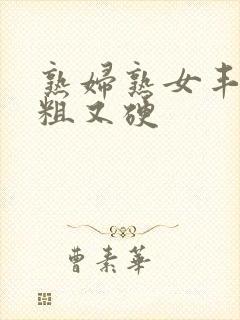 熟婦熟女丰
粗又硬
曹素華